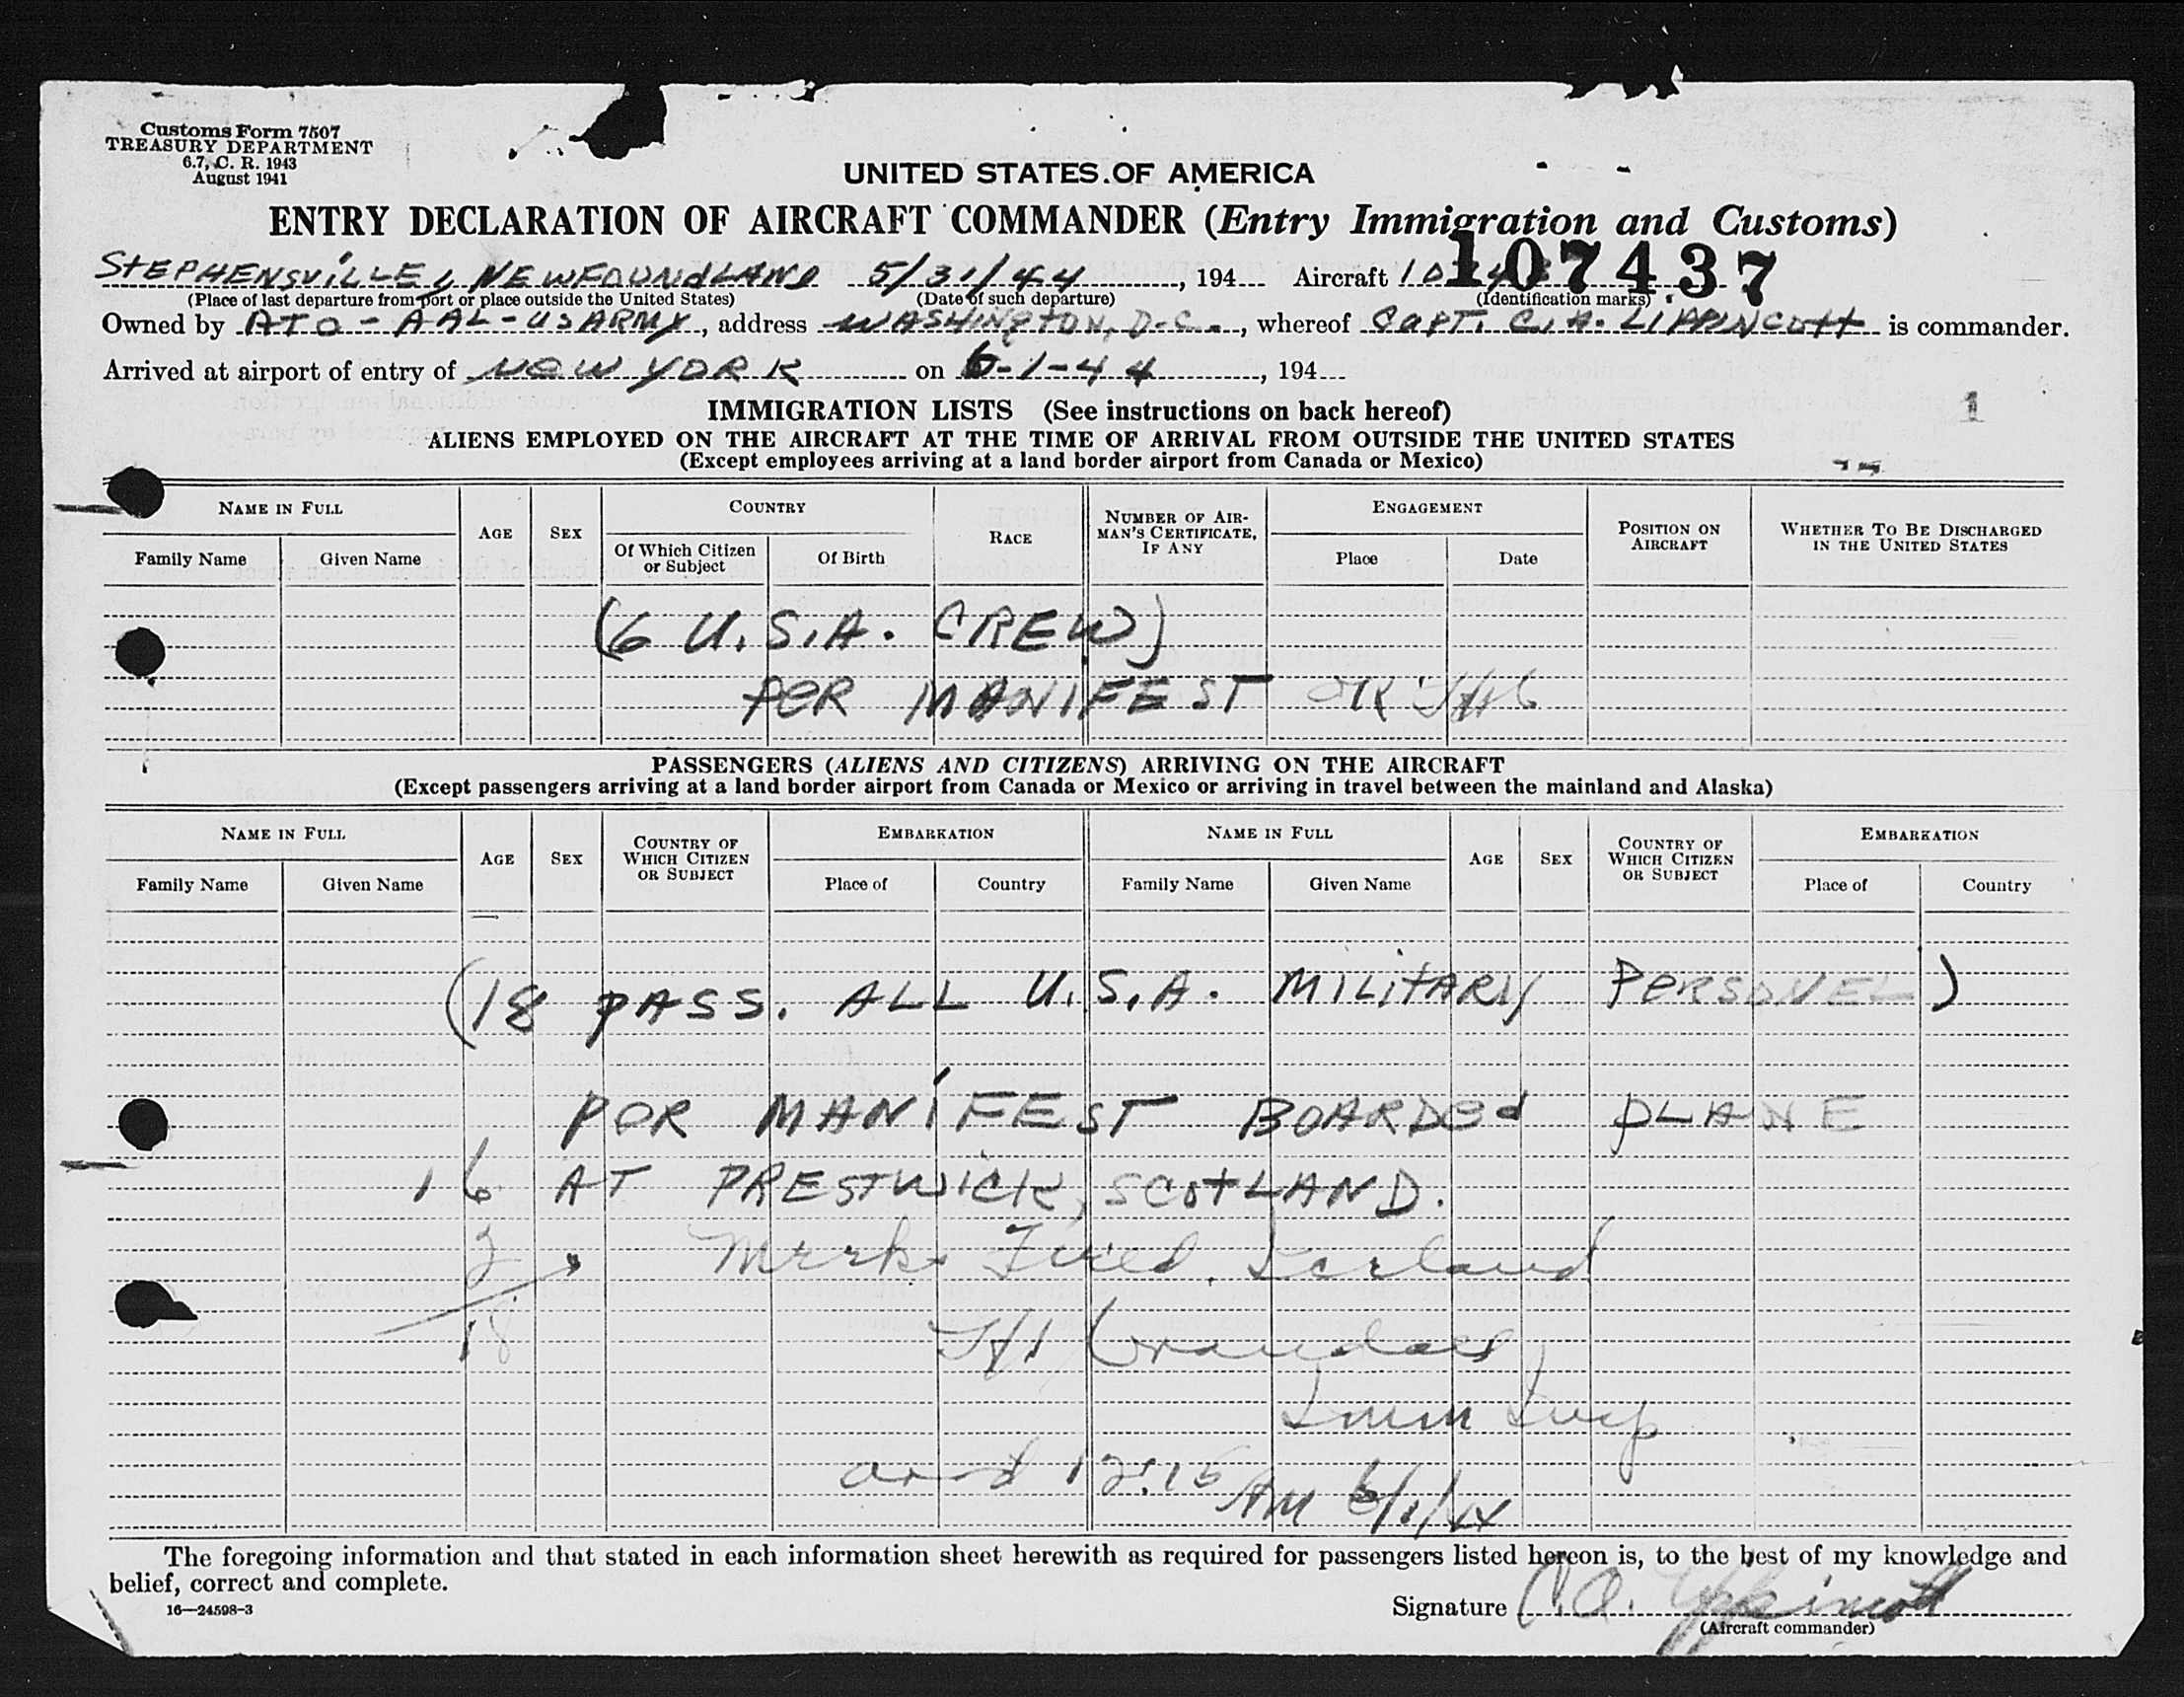 Customs Form 7507
TREASURY DEPARTMENT
6.7, C. R. 1943
August 1941
UNITED STATES OF AMERICA
ENTRY DECLARATION OF AIRCRAFT COMMANDER (Entry Immigration and Customs)
107437
STEPHENSVILLE, NEWFOUNDLAND 5/31/44, 194 Aircraft
(Place of last departure from port or place outside the United States) (Date of such departure) (Identification marks)
Owned by ATO - AAL - US ARMY, address WASHINGTON, D.C., whereof CAPT. C. A. LIPPINCOTT is commander.
Arrived at airport of entry of NEW YORK on 6-1-44, 194
1
IMMIGRATION LISTS (See instructions on back hereof)
ALIENS EMPLOYED ON THE AIRCRAFT AT THE TIME OF ARRIVAL FROM OUTSIDE THE UNITED STATES
(Except employees arriving at a land border airport from Canada or Mexico)
NAME IN FULL AGE SEX COUNTRY RACE NUMBER OF AIRMAN'S CERTIFICATE, IF ANY ENGAGEMENT POSITION ON AIRCRAFT WHETHER TO BE DISCHARGED IN THE UNITED STATES
Family Name Given Name Of Which Citizen or Subject Of Birth Place Date
(6 U.S.A. CREW)
PER MANIFEST OK
PASSENGERS (ALIENS AND CITIZENS) ARRIVING ON THE AIRCRAFT
(Except passengers arriving at a land border airport from Canada or Mexico or arriving in travel between the mainland and Alaska)
NAME IN FULL AGE SEX COUNTRY OF WHICH CITIZEN OR SUBJECT EMBARKATION NAME IN FULL AGE SEX COUNTRY OF WHICH CITIZEN OR SUBJECT EMBARKATION
Family Name Given Name Place of Country Family Name Given Name Place of Country
(18 PASS. ALL U.S.A. MILITARY PERSONEL)
PER MANIFEST BOARDED PLANE
16 AT PRESTWICK, SCOTLAND.
2 " Meeks Field, Iceland
18
Imm Insp
arrd 12:15 AM 6/1/44
The foregoing information and that stated in each information sheet herewith as required for passengers listed hereon is, to the best of my knowledge and
belief, correct and complete.
16—24598-3
Signature C. A. Lippincott
(Aircraft commander)